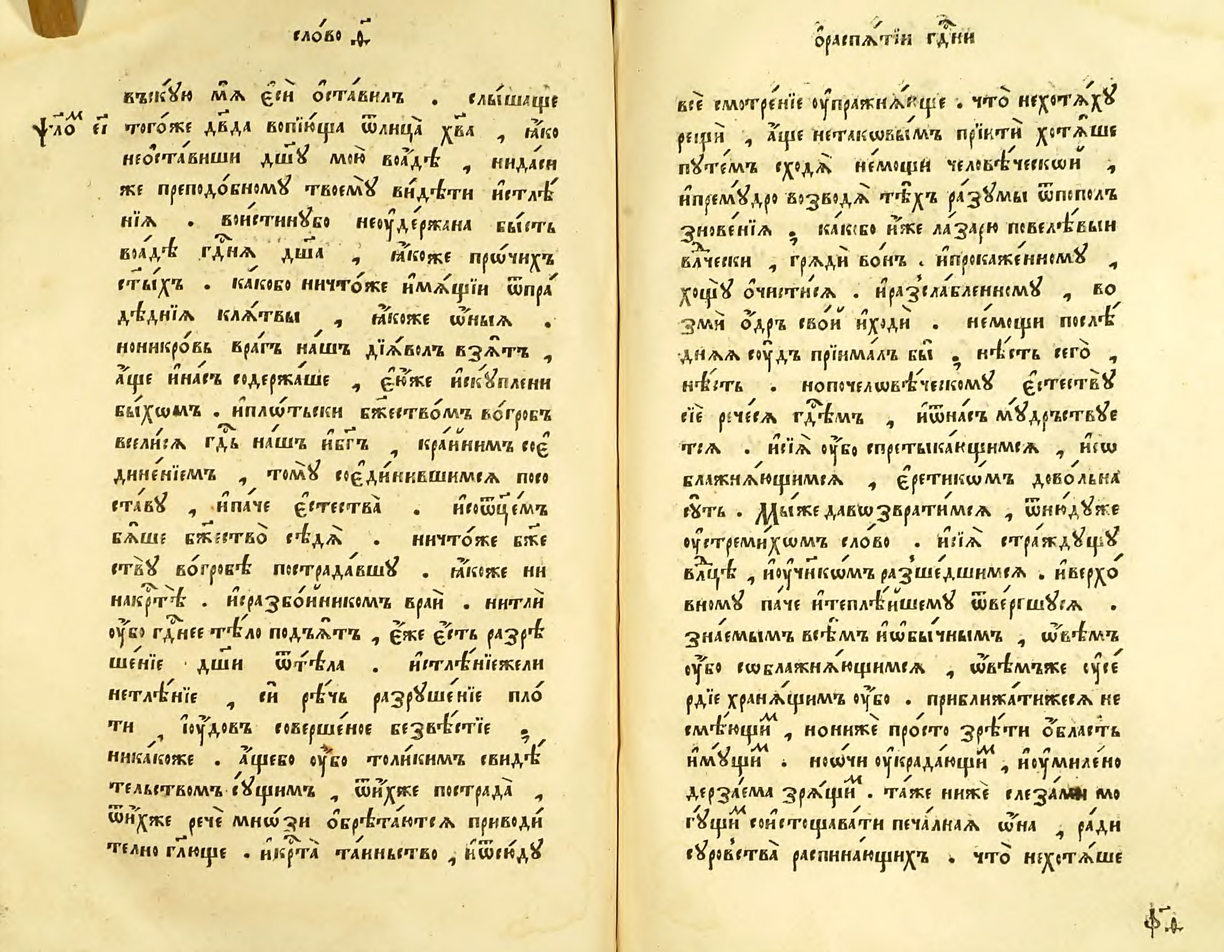 сло́во .д҃.
въскꙋ́ю мѧ̀ є҆сѝ ѡ҆ста́вилъ . слы́шаще
ѱало́м є҃і
тогѡ́же дв҃да вопїю́ща ѿлица̀ хв҃а , ꙗ҆́ко
нео҆ста́виши дш҃ꙋ мою̀ воа҆́дѣ , нида́си
же преподо́бномꙋ твоемꙋ̀ ви́дѣти и҆стлѣ́
нїѧ . вои́стинꙋбо неоу҆де́ржана бы́сть
воа҆́дѣ гдⷭ҇нѧ дш҃а , ꙗ҆́коже про́чихъ
ст҃ы́хъ . ка́кобо ничто́же и҆мѧ́щїи ѿпра́
дѣднїѧ клѧ́твы , ꙗ҆́коже ѻ҆́ныѧ .
нони́кро́вь вра́гъ на́шъ дїѧ́волъ взѧ́тъ ,
а҆́ще и҆на́съ содержа́ше , є҆ю́же и҆скꙋ́плени
бы́хѡмъ . и҆пло́тьски бж҃ество́мъ во́гробъ
всели́сѧ гдⷭ҇ь на́шъ и҆бг҃ъ , кра́йнимъ сое҆
дине́нїемъ , томꙋ̀ сое҆дини́вшимсѧ посо
ста́вꙋ , и҆па́че є҆стества̀ . и҆соѻ҆ц҃е́мъ
бѧ́ше бж҃ество̀ сѣдѧ̀ . ничто́же бж҃е
ствꙋ̀ во́гробѣ пострада́вшꙋ . ꙗ҆́коже ни
накрⷭ҇тѣ̀ . и҆сразбо́йникомъ вра́й . нитлѝ
оу҆́бо гдⷭ҇нее тѣ́ло подъѧ́тъ , є҆́же є҆́сть разрѣ
ше́нїе дш҃и ѿтѣ́ла . и҆стлѣ́нїежели
нетлѣ́нїе , сѝ рѣ́чь разрꙋше́нїе пло́
ти , і҆оу҆́довъ соверше́ное безвѣ́стїе ;
ника́коже . а҆́щебо оу҆́бо толи́кимъ свидѣ́
тельствомъ сꙋ́щимъ , ѿи҆́хже пострада̀ ,
ѿи҆́хже речѐ мно́зи ѡ҆брѣта́ютсѧ приводи́
телно гл҃юще . и҆крⷭ҇та̀ та́иньство , и҆ѿсю́дꙋ
ѡ҆распѧ́тїи гдⷭ҇ни
всѐ смотре́нїе оу҆пражнѧ́юще . что̀ нехотѧ́хꙋ
рещѝ , а҆́ще нетаковы́мъ прїитѝ хотѧ́ше
пꙋте́мъ сходѧ̀ не́мощи человѣ́ческой ,
и҆премꙋ́дро возводѧ̀ тѣ́хъ ра́зꙋмы ѿпопол
знове́нїѧ ; ка́кѡбо и҆́же ла́зарю повелѣ́выи
влⷣчески , грѧдѝ во́нъ . и҆прокаже́нномꙋ ,
хощꙋ̀ ѡ҆чи́стисѧ . и҆разсла́бленномꙋ , во
змѝ ѻ҆́дръ сво́й и҆ходѝ . не́мощи послѣ́
днѧѧ соу́дъ прїима́лъ бы̀ ; нѣ́сть сего̀ ,
нѣ́сть . нопочеловѣ́ческомꙋ є҆стествꙋ̀
сїѐ рече́сѧ гдⷭ҇емъ , и҆ѡ҆на́съ мꙋ́дрьствꙋе
тсѧ . и҆сїѧ̀ оу҆́бо спретыка́ющимсѧ , и҆со
блажнѧ́ющимсѧ , є҆ретико́мъ дово́льна
сꙋ́ть . Мы́же давозврати́мсѧ , ѿню́дꙋже
оу҆стреми́хомъ сло́во . и҆сїѧ̀ стра́ждꙋщꙋ
влⷣцѣ , и҆оу҆ч҃нико́мъ разше́дшимсѧ . и҆верхо́
вномꙋ па́че и҆теплѣ́йшемꙋ ѿве́ргшꙋсѧ .
зна́емымъ всѣ́мъ и҆ѻ҆бы́чнымъ , ѻ҆вѣ́мъ
оу҆́бо соблажнѧ́ющимсѧ , ѻ҆вѣ́мъже сꙋсе́
рдїе хранѧ́щимъ оу҆́бо . приближа́тижесѧ не
смѣ́ющим , нонижѐ про́сто зрѣ́ти ѻ҆́бласть
и҆мꙋ́щим . ноѻ҆́чи оу҆крада́ющим , и҆оу҆миле́но
дерза́ема зрѧ́щим . та́же нижѐ слеза́ми мо
гꙋ́щим соистощава́ти печа́лнаѧ ѻ҆́на , ра́ди
сꙋ́ровства распина́ющихъ . что̀ нехотѧ́ше
ф҃д